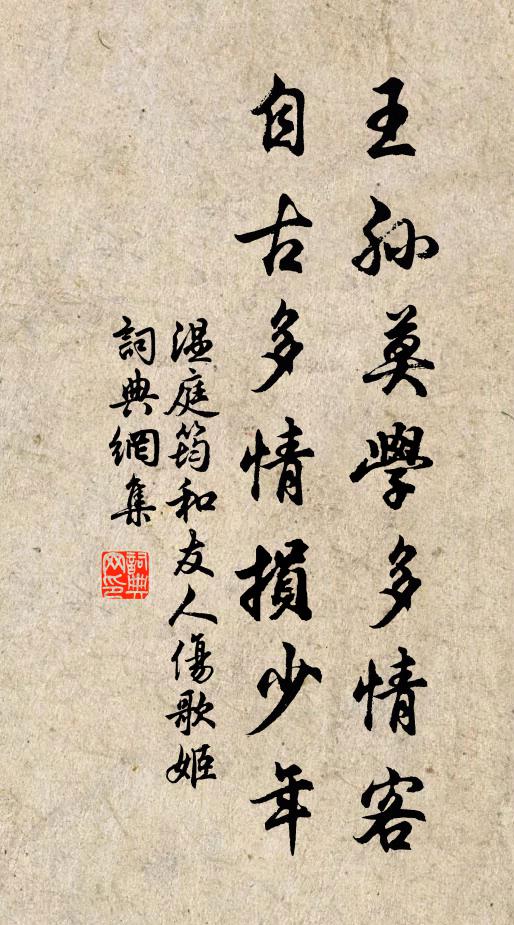 王孫莫學多情客
自古多情損少年
溫庭筠和友人傷歌姬
詞典網集
詞典网印